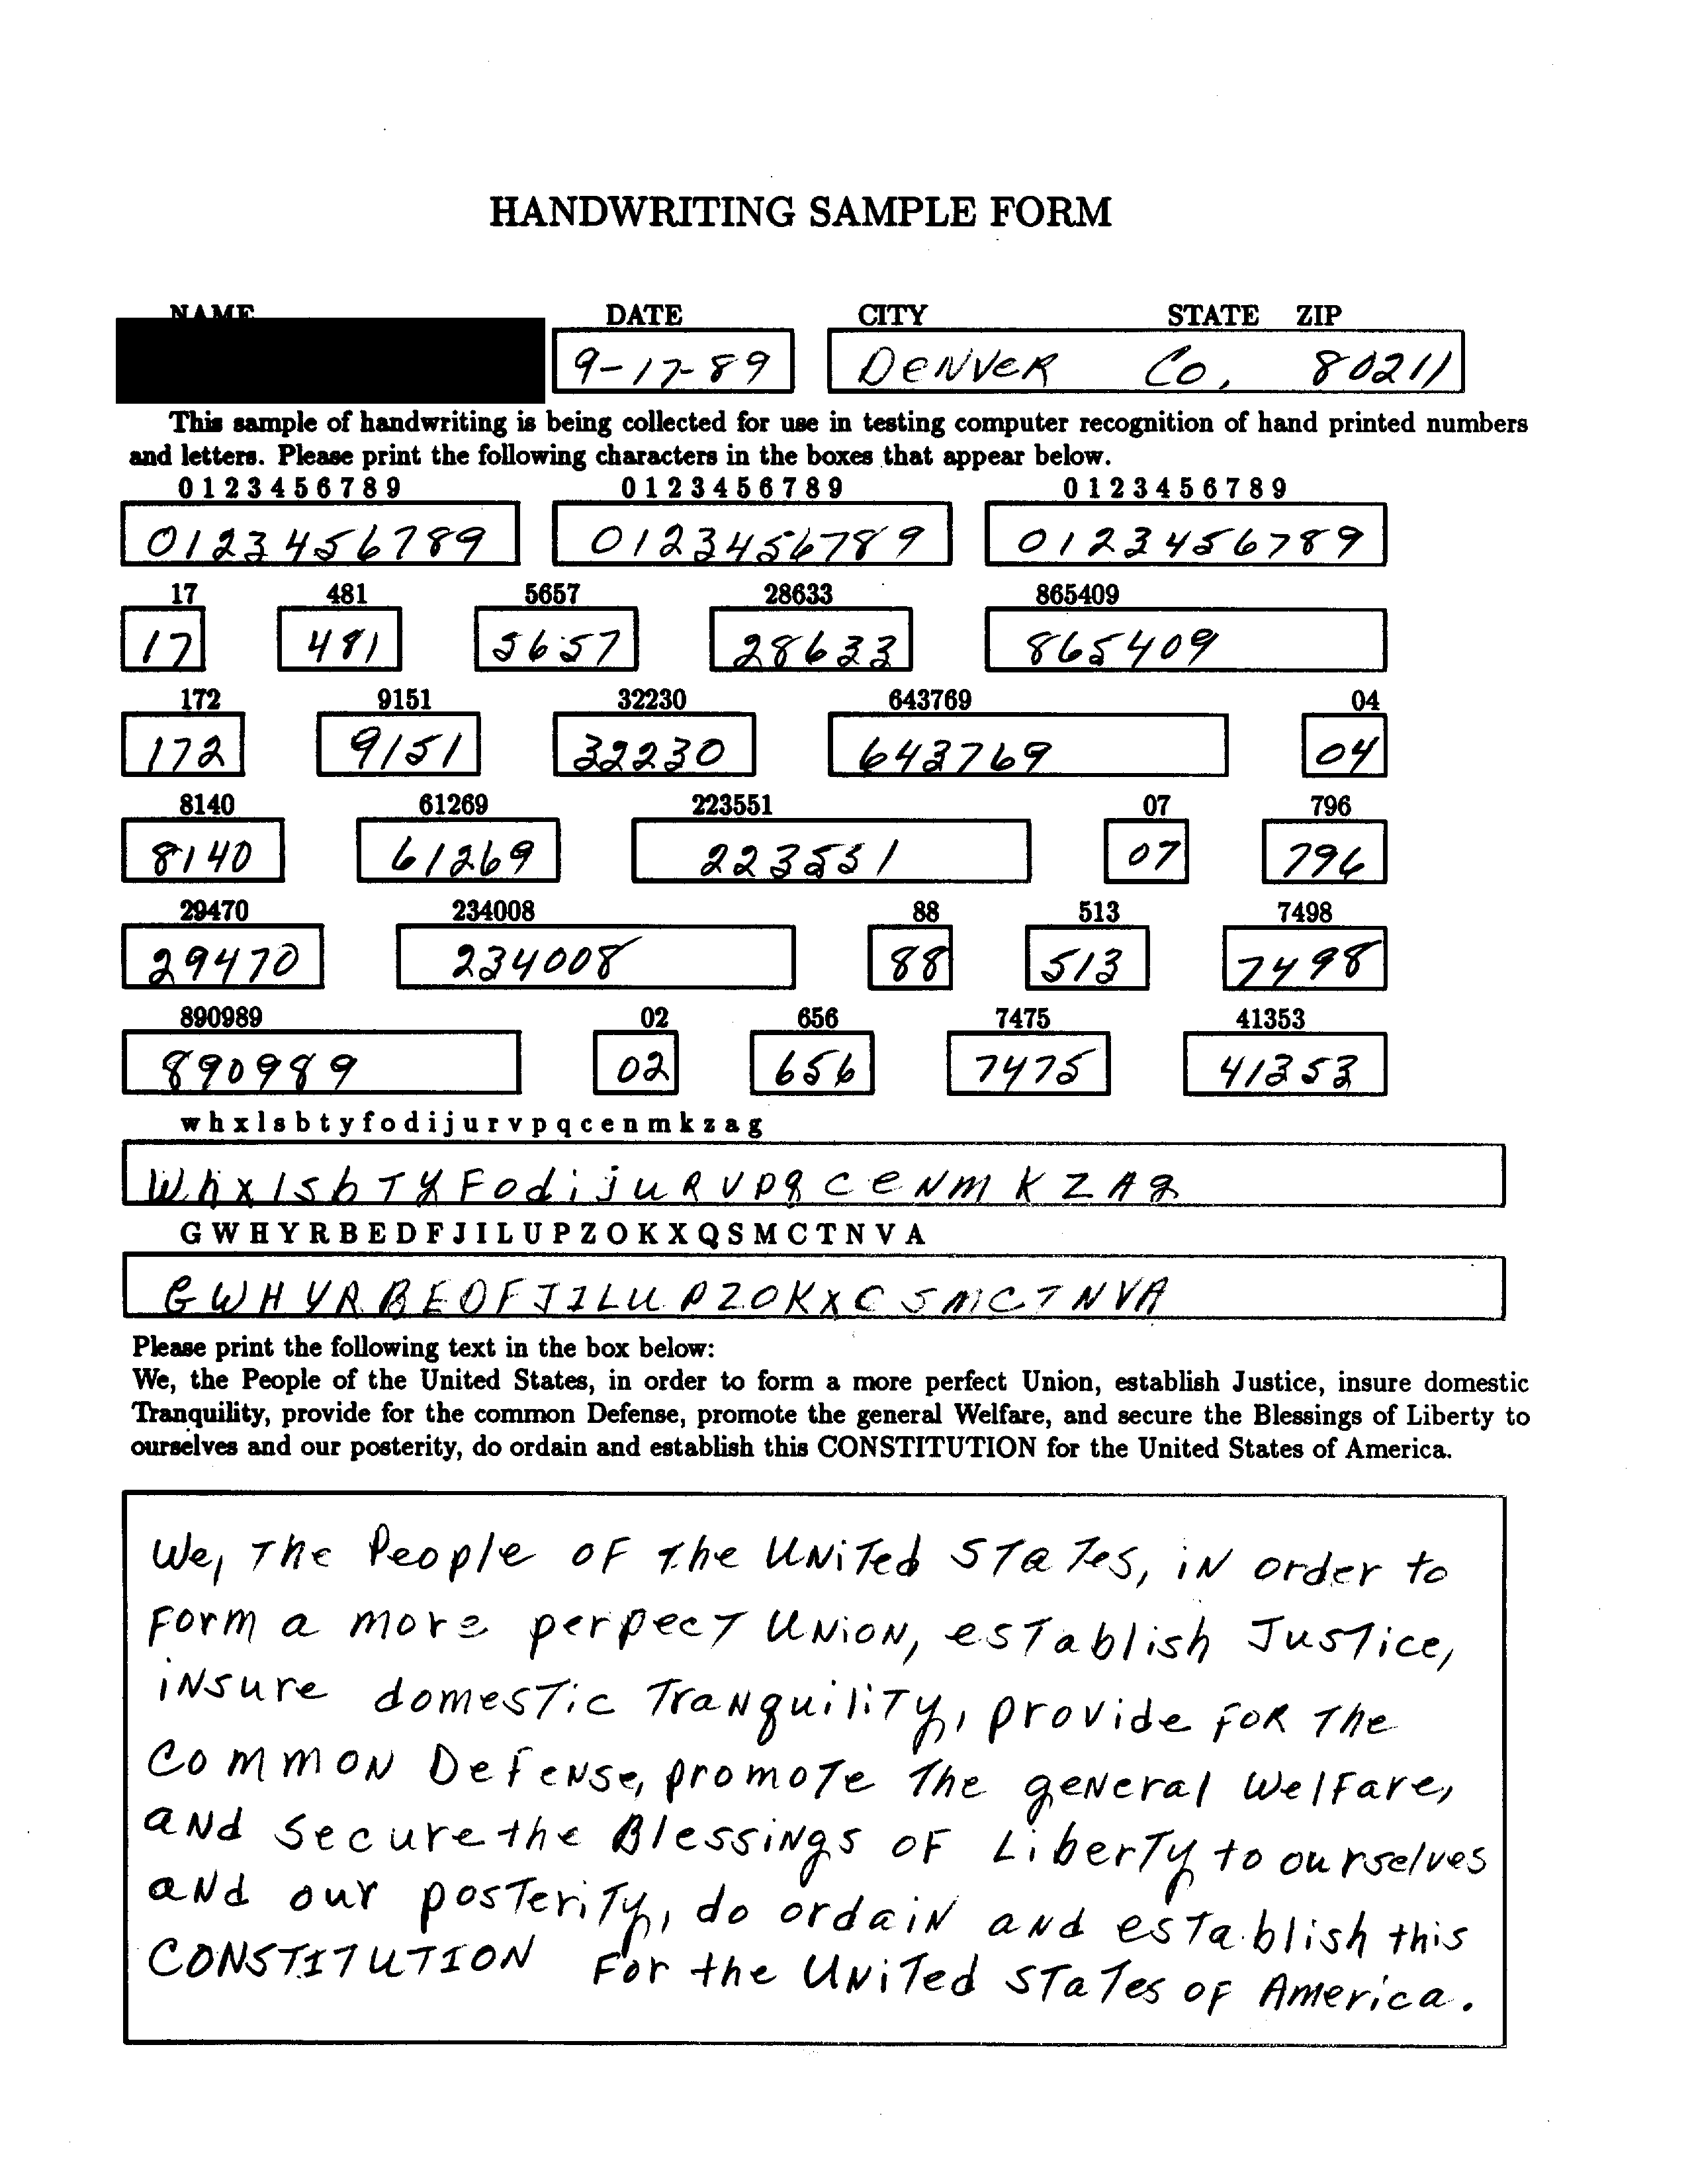 HANDWRITING SAMPLE FORM
NAME DATE CITY STATE ZIP
9-17-89 DENVER Co, 80211
This sample of handwriting is being collected for use in testing computer recognition of hand printed numbers
and letters. Please print the following characters in the boxes that appear below.
0 1 2 3 4 5 6 7 8 9 0 1 2 3 4 5 6 7 8 9 0 1 2 3 4 5 6 7 8 9
0123456789 0123456789 0123456789
17 481 5657 28633 865409
17 481 5657 28633 865409
172 9151 32230 643769 04
172 9151 32230 643769 04
8140 61269 223551 07 796
8140 61269 223551 07 796
29470 234008 88 513 7498
29470 234008 88 513 7498
890989 02 656 7475 41353
890989 02 656 7475 41353
w h x l s b t y f o d i j u r v p q c e n m k z a g
W h x l s b T y F o d i j u R V p q c e N m K Z A g
G W H Y R B E D F J I L U P Z O K X Q S M C T N V A
G W H Y R B E D F J I L U P Z O K X C S M C T N V A
Please print the following text in the box below:
We, the People of the United States, in order to form a more perfect Union, establish Justice, insure domestic
Tranquility, provide for the common Defense, promote the general Welfare, and secure the Blessings of Liberty to
ourselves and our posterity, do ordain and establish this CONSTITUTION for the United States of America.
We, The People OF The UNiTed STaTes, iN order to
Form a more perpecT UNiON, esTablish JusTice,
iNsure domesTic TraNquiliTy, provide foR The
CommoN DefeNse, promoTe The geNeral WelFare,
aNd secure the BlessiNgs oF LiberTy to ourselves
aNd our posTeriTy, do ordaiN aNd esTablish this
CONSTITUTION For the UNiTed STaTes oF America.